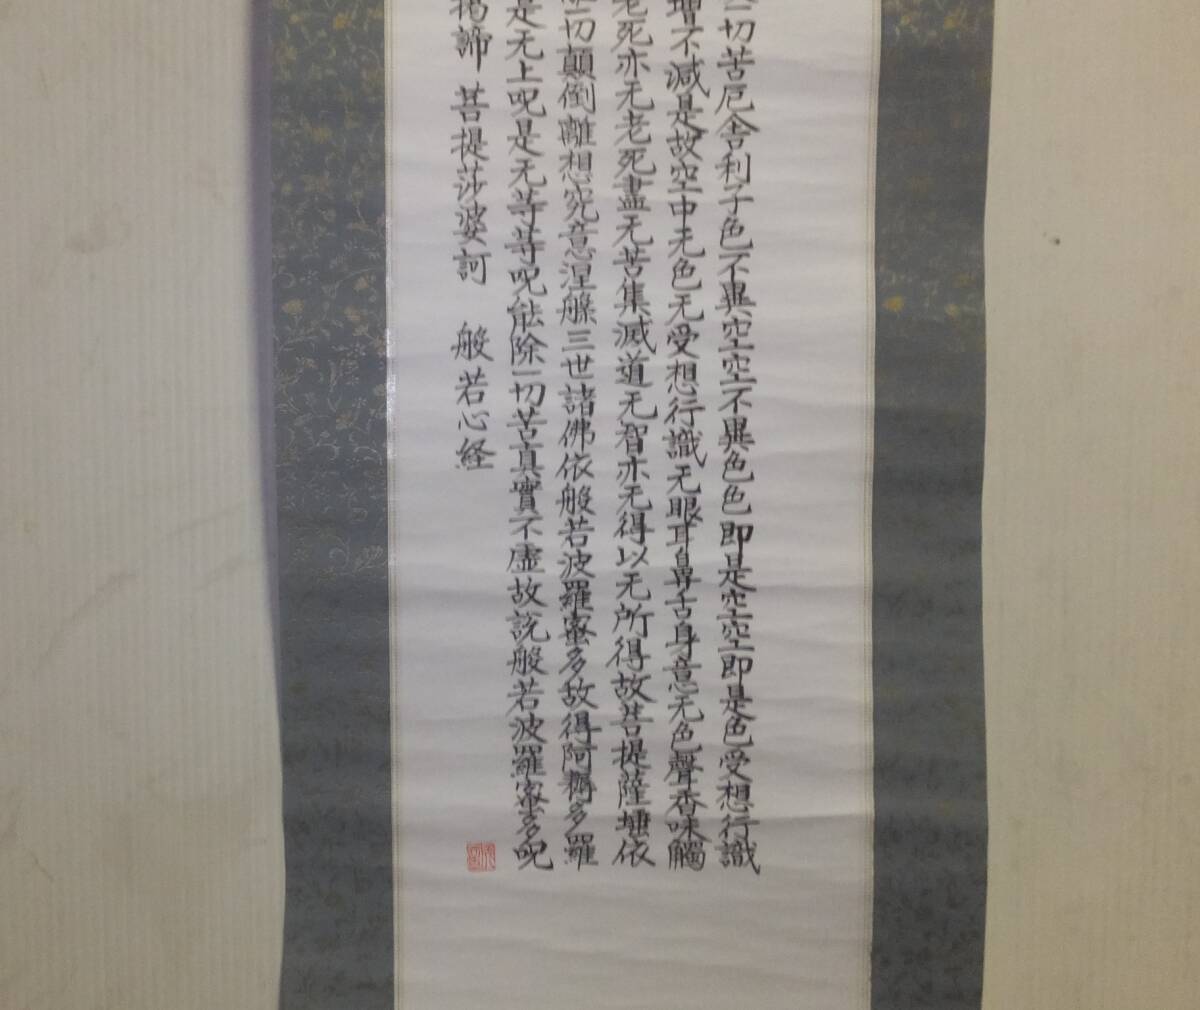 一切苦厄舎利子色不異空空不異色色即是空空即是色受想行識
増不減是故空中无色无受想行識无眼耳鼻舌身意无色聲香味觸
老死亦无老死盡无苦集滅道无智亦无得以无所得故菩提薩埵依
一切顛倒離想究意涅槃三世諸佛依般若波羅蜜多故得阿耨多羅
是无上呪是无等等呪能除一切苦真實不虚故説般若波羅蜜多呪
揭諦 菩提莎婆訶 般若心経